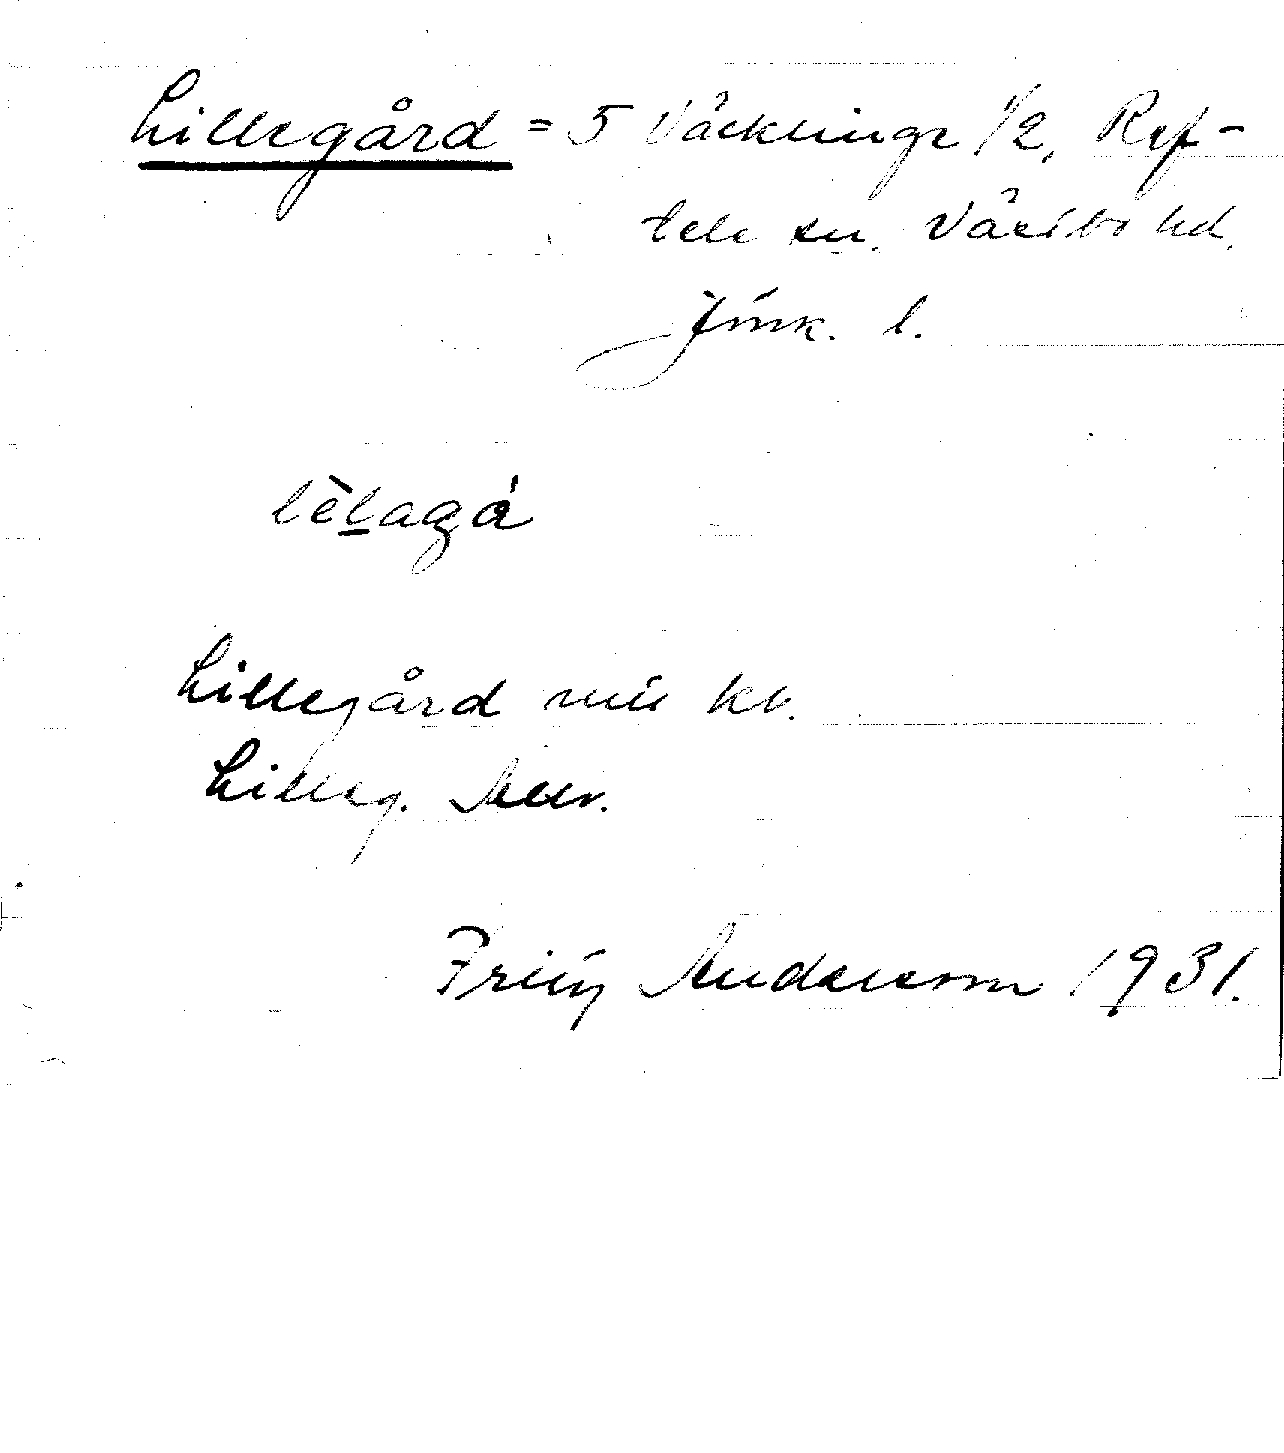 Lillegård = 5 Väcklinge 1/2, Ref-
tele sn. Västbo hd.
Jönk. l.
lèlagá
Lillegård kv.
Lilleg.
Andersson 1931.